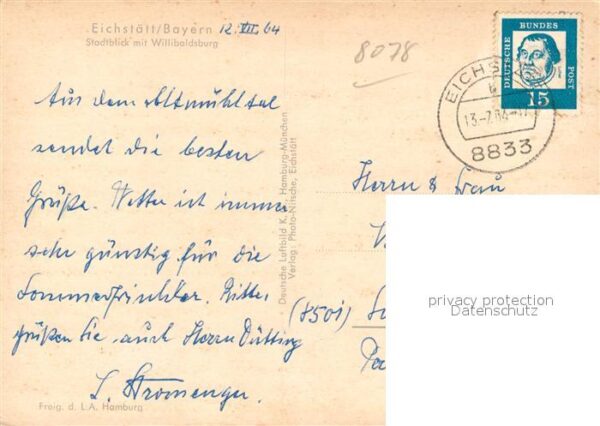 Eichstätt/Bayern 12.VII.64
Stadtblick mit Willibaldsburg
8078
DEUTSCHE BUNDES POST
15
EICHS
13.-7.64-
8833
Aus dem Altmühltal
sendet die besten
Grüße. Wetter ist immer
sehr günstig für die
Sommerfrischler. Bitte,
grüßen Sie auch Herrn Dütting
L. Stromenger.
Deutsche Luftbild K. Hamburg-München
Verlag: Photo-Nitsche, Eichstätt
Herrn & Frau
(8501)
privacy protection
Datenschutz
Freig. d. L.A. Hamburg